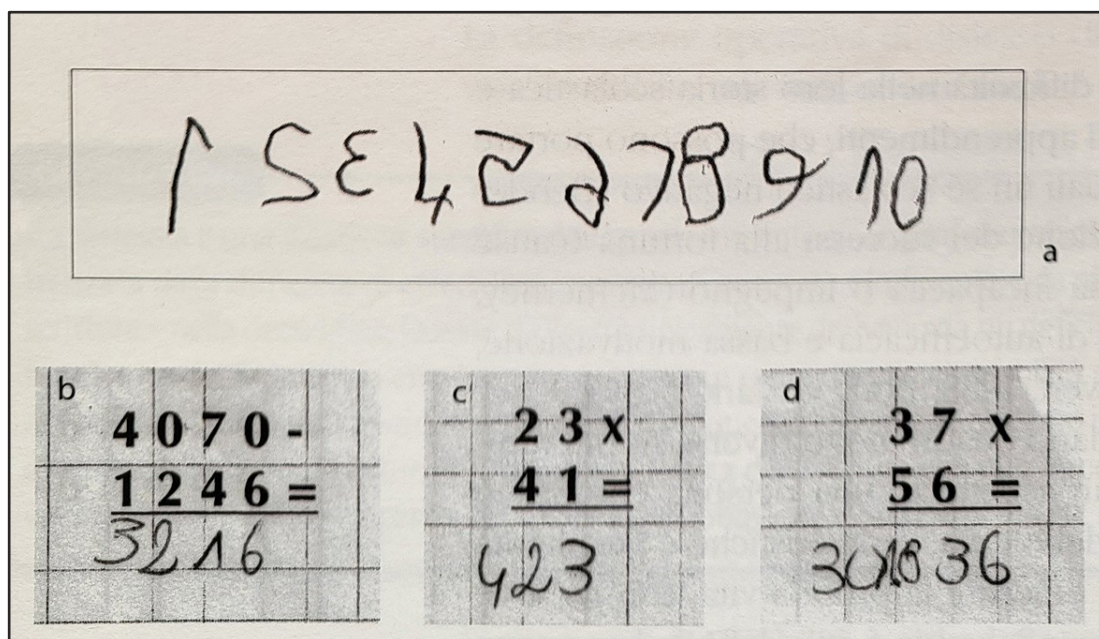 1 2 3 4 5 6 7 8 9 10
a
b
4 0 7 0 -
1 2 4 6 =
3216
c
2 3 x
4 1 =
423
d
3 7 x
5 6 =
36